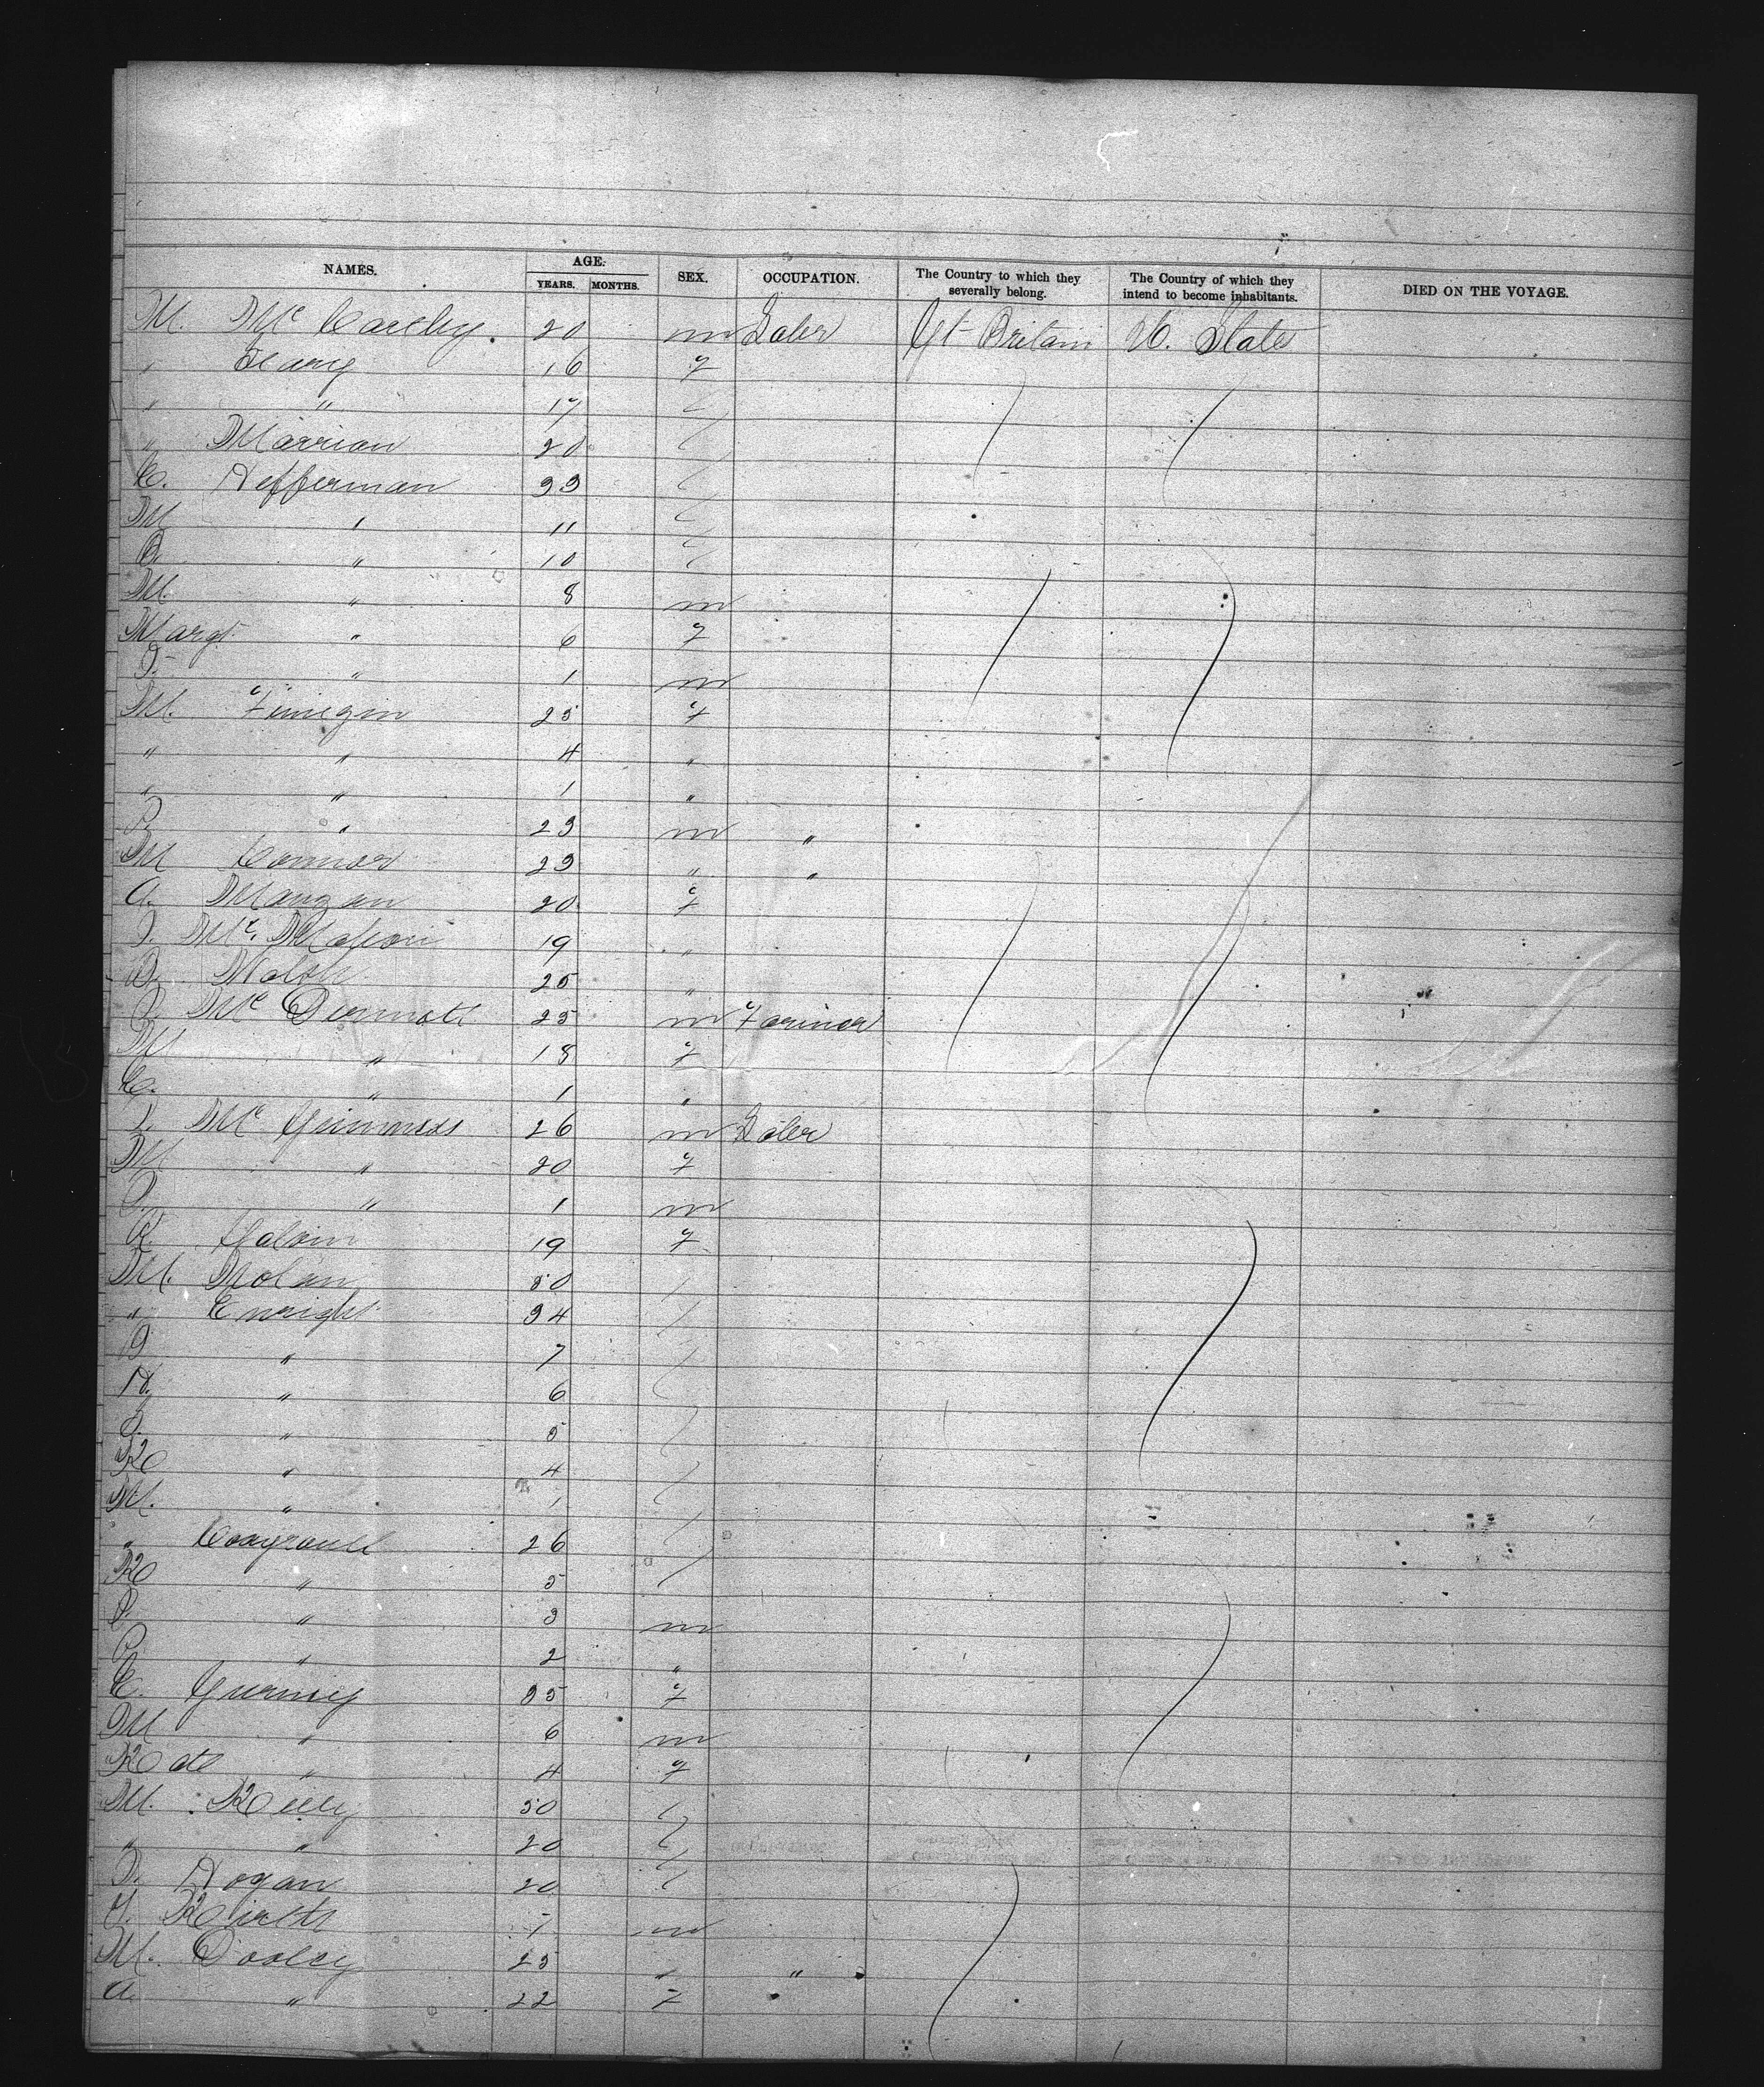 NAMES. AGE. YEARS. MONTHS. SEX. OCCUPATION. The Country to which they severally belong. The Country of which they intend to become inhabitants. DIED ON THE VOYAGE.
M. McCarthy. 20 m Laber Gt Britain U. States
" 16 f
" " 17
" Marrian 20
C. Hefferman 33
M " 11
B. " 10
M. " 8 m
Margt. " 6 f
" 1 m
M. Finnegin 25 f
" " 4 "
" " 1 "
P. " 23 m "
M Connor 23 " "
A. Mangan 20 f
Mc. Mahon 19 "
B. Walsh 25 "
Mc Dermott 25 m Farmer
M " 18 f
C. " 1 "
Mc Guinness 26 m Laber
M " 20 f
" 1 m
19 f
M. Nolan 50
" Enright 34
D " 7
H. " 6
" 5
K " 4
M. " 1
" 26
K " 5
" 3 m
P. " 2 "
C. 35 f
M " 6 m
Kate " 4 f
M. 50
" " 20
Hogan 20
m
M. Dooley 25 " "
A " 22 f